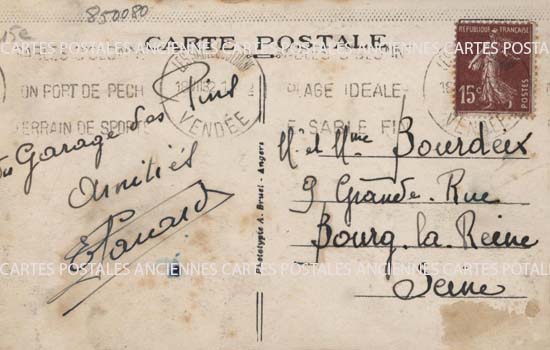 850080
15c
CARTE POSTALE
RÉPUBLIQUE FRANÇAISE
15c
POSTES
ON PORT DE PECH
PLAGE IDEALE
TERRAIN DE SPORTS
DE SABLE FI
VENDÉE
VENDÉE
Garage des Pins
Amitiés
Phototypie A. Bruel - Angers
Mr et Mme Bourdeix
9 Grande Rue
Bourg-la-Reine
Seine
CARTES POSTALES ANCIENNES CARTES POSTALES ANCIENNES CARTES POSTALES ANCIENNES
CARTES POSTALES ANCIENNES CARTES POSTALES ANCIENNES CARTES POSTALES ANCIENNES